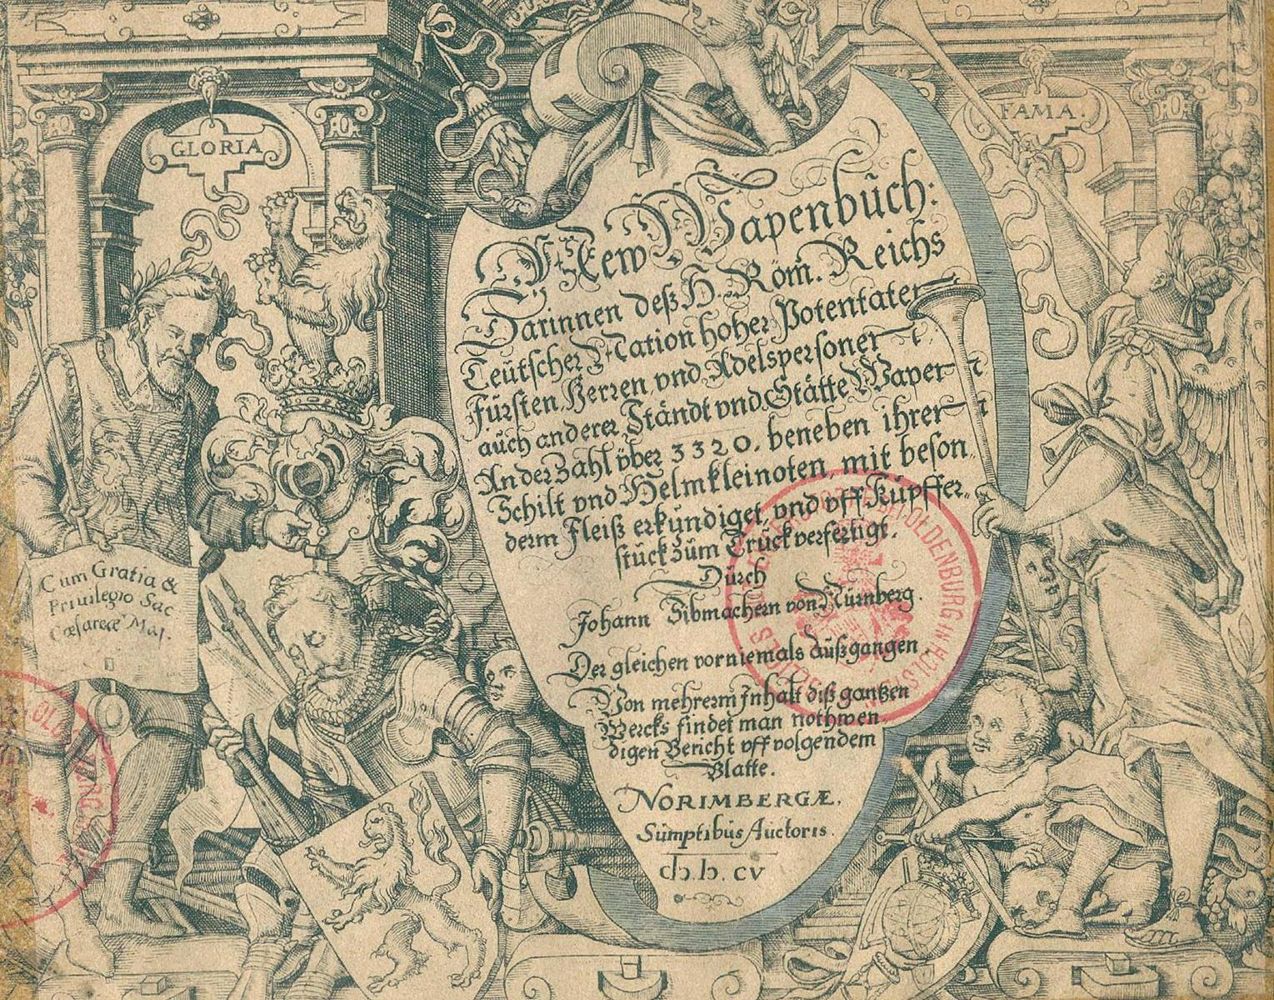 GLORIA
FAMA.
New Wapenbůch:
Darinnen deß H. Röm. Reichs
Teůtscher Nation hoher Potentaten
Fürsten, Herren vnd Adelspersonen
aůch anderer Ständt vnd Stätte Wapen
An der Zahl über 3320. beneben ihren
Schilt vnd Helmkleinoten, mit beson
derm Fleiß erkůndiget, vnd vff Kůpffer
stůck zům Trůck verfertigt.
Důrch
Johann Sibmachern von Nůrnberg.
Der gleichen vorniemals aůßgangen
Von mehrerm Inhalt diß gantzen
Wercks findet man nothwen
digen Bericht vff volgendem
Blatte.
NORIMBERGÆ.
Sůmptibůs Aůctoris.
CIↃ.IↃ.CV
Cum Gratia &
Priuilegio Sac
Cæsareæ Mai.